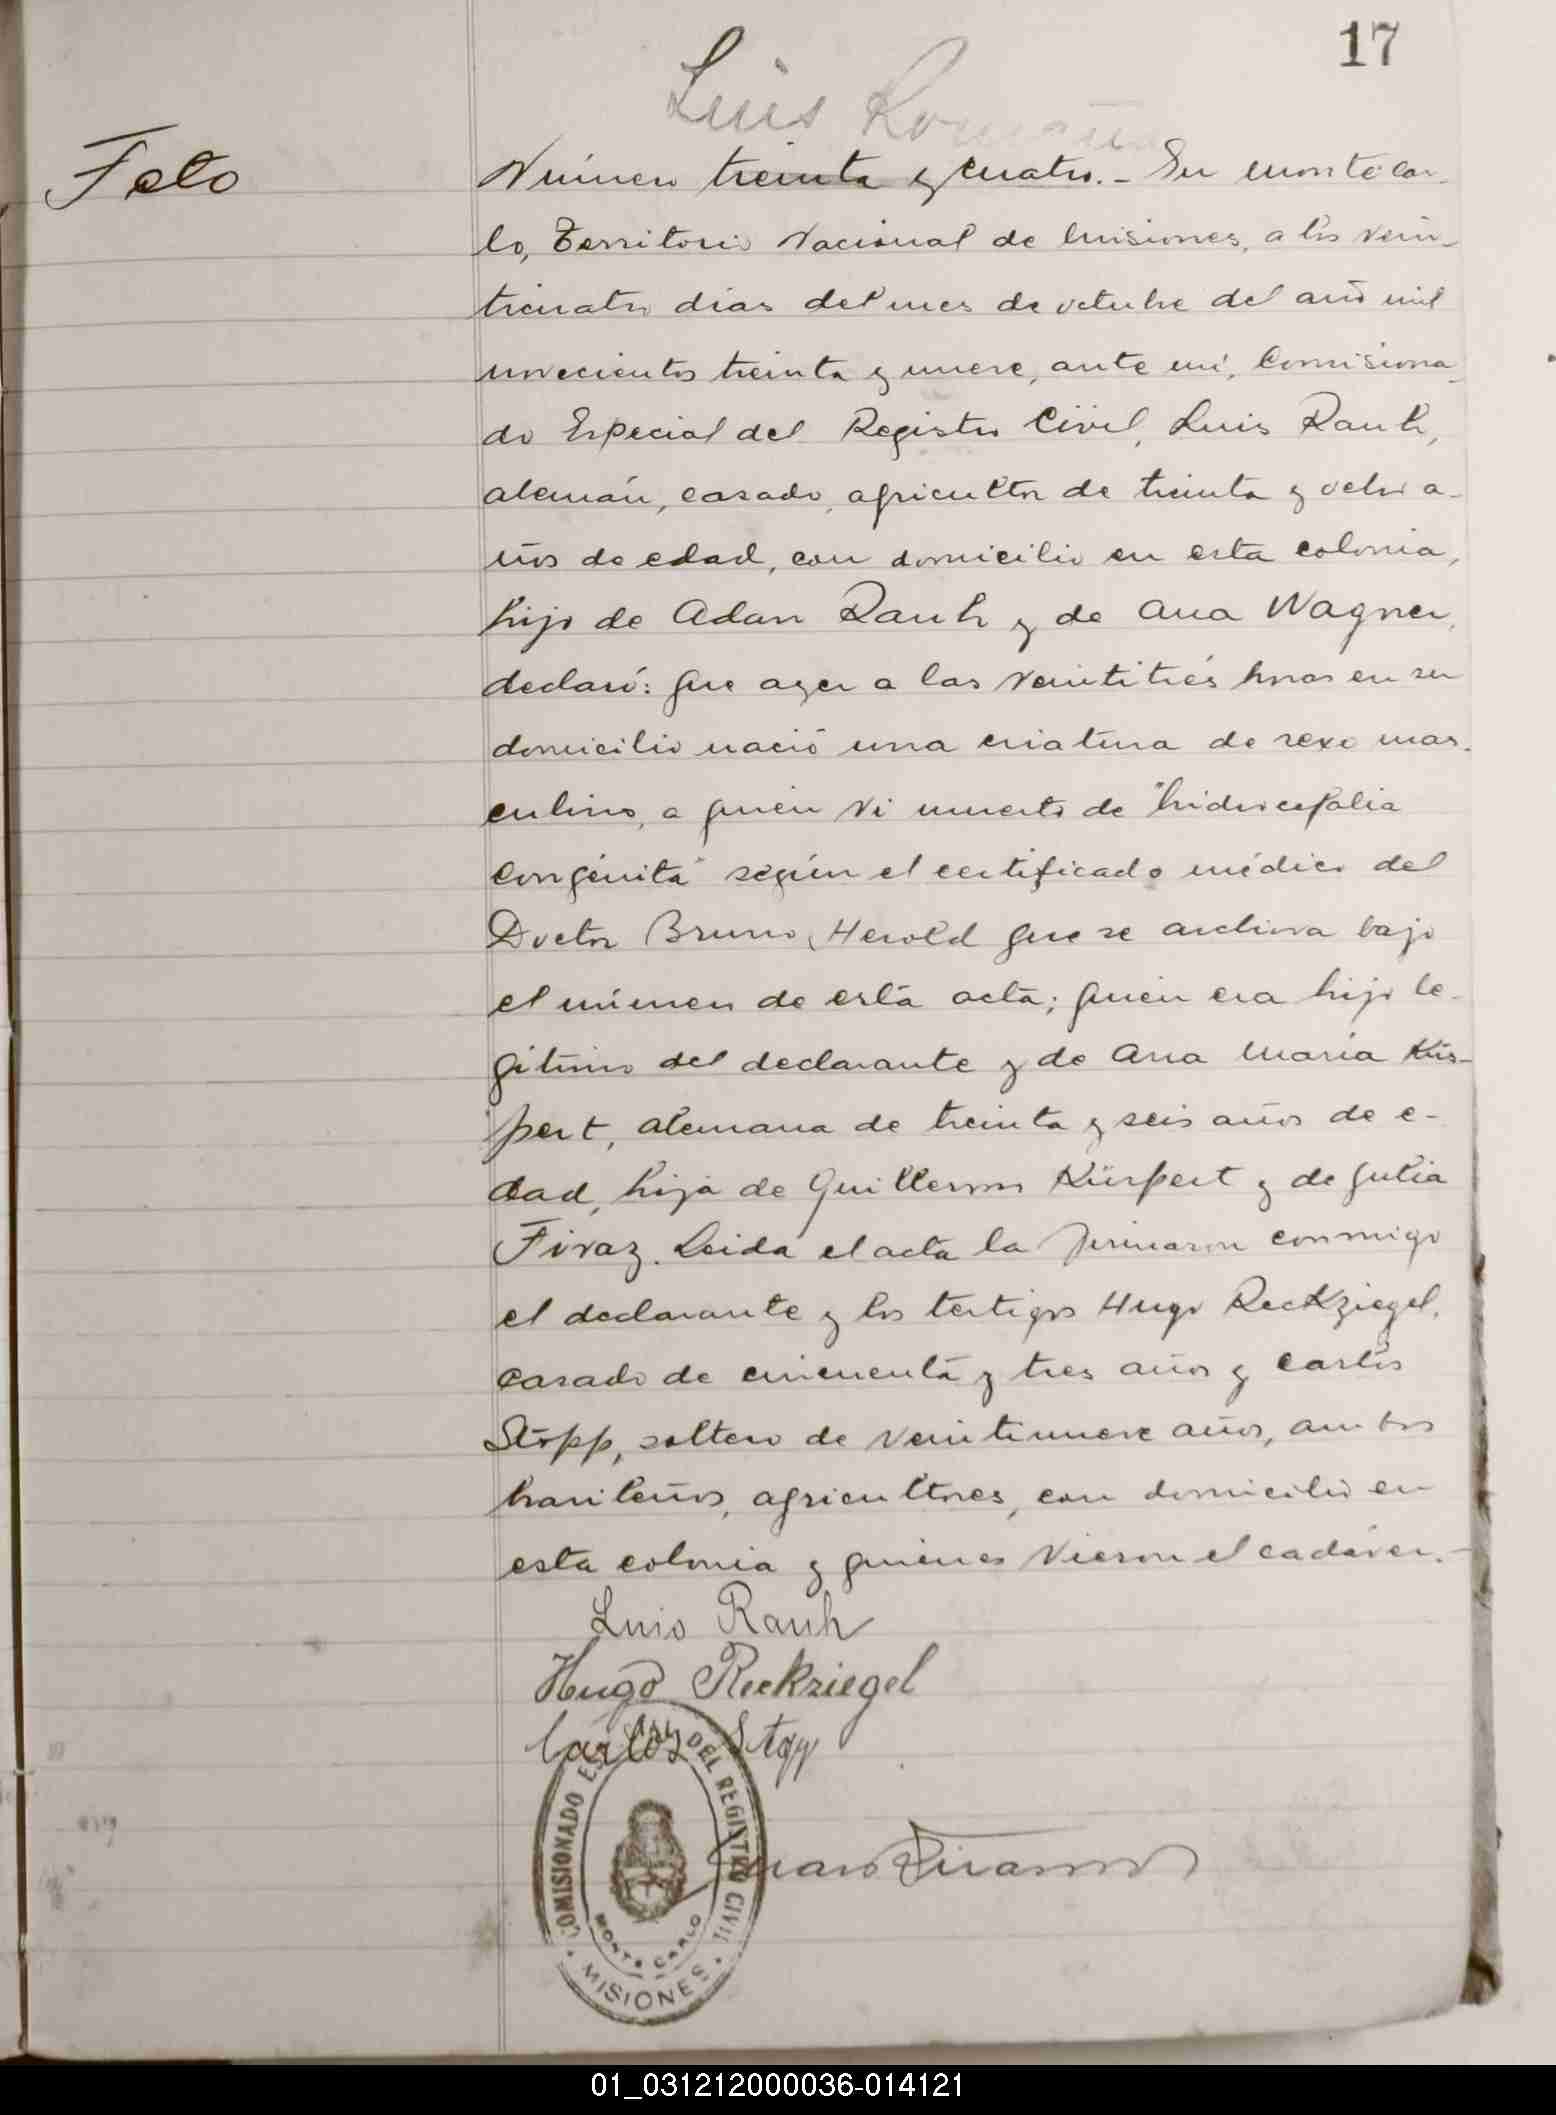 17
Luis
Feto
Número treinta y cuatro.- En monte car-
lo, Territorio Nacional de Misiones, a los vein-
ticuatro días del mes de octubre del año mil
novecientos treinta y nueve, ante mí, Comisiona-
do Especial del Registro Civil, Luis Rauh,
alemán, casado, agricultor de treinta y ocho a-
ños de edad, con domicilio en esta colonia,
hijo de Adan Rauh y de Ana Wagner,
declaró: que ayer a las veintitrés horas en su
domicilio nació una criatura de sexo mas-
culino, a quien vi muerto de "hidrocefalia
congénita" según el certificado médico del
Doctor Bruno Herold que se archiva bajo
el número de esta acta; quien era hijo le-
gítimo del declarante y de Ana María Küs-
pert, alemana de treinta y seis años de e-
dad, hija de Guillermo Küspert y de Julia
Firaz. Leida el acta la firmaron conmigo
el declarante y los testigos Hugo Reckziegel,
casado de cincuenta y tres años y Carlos
Stopp, soltero de veintinueve años, ambos
brasileños, agricultores, con domicilio en
esta colonia y quienes vieron el cadáver.-
Luis Rauh
Hugo Reckziegel
Carlos Stopp
COMISIONADO ESPECIAL DEL REGISTRO CIVIL
MONTE CARLO
MISIONES
01_031212000036-014121